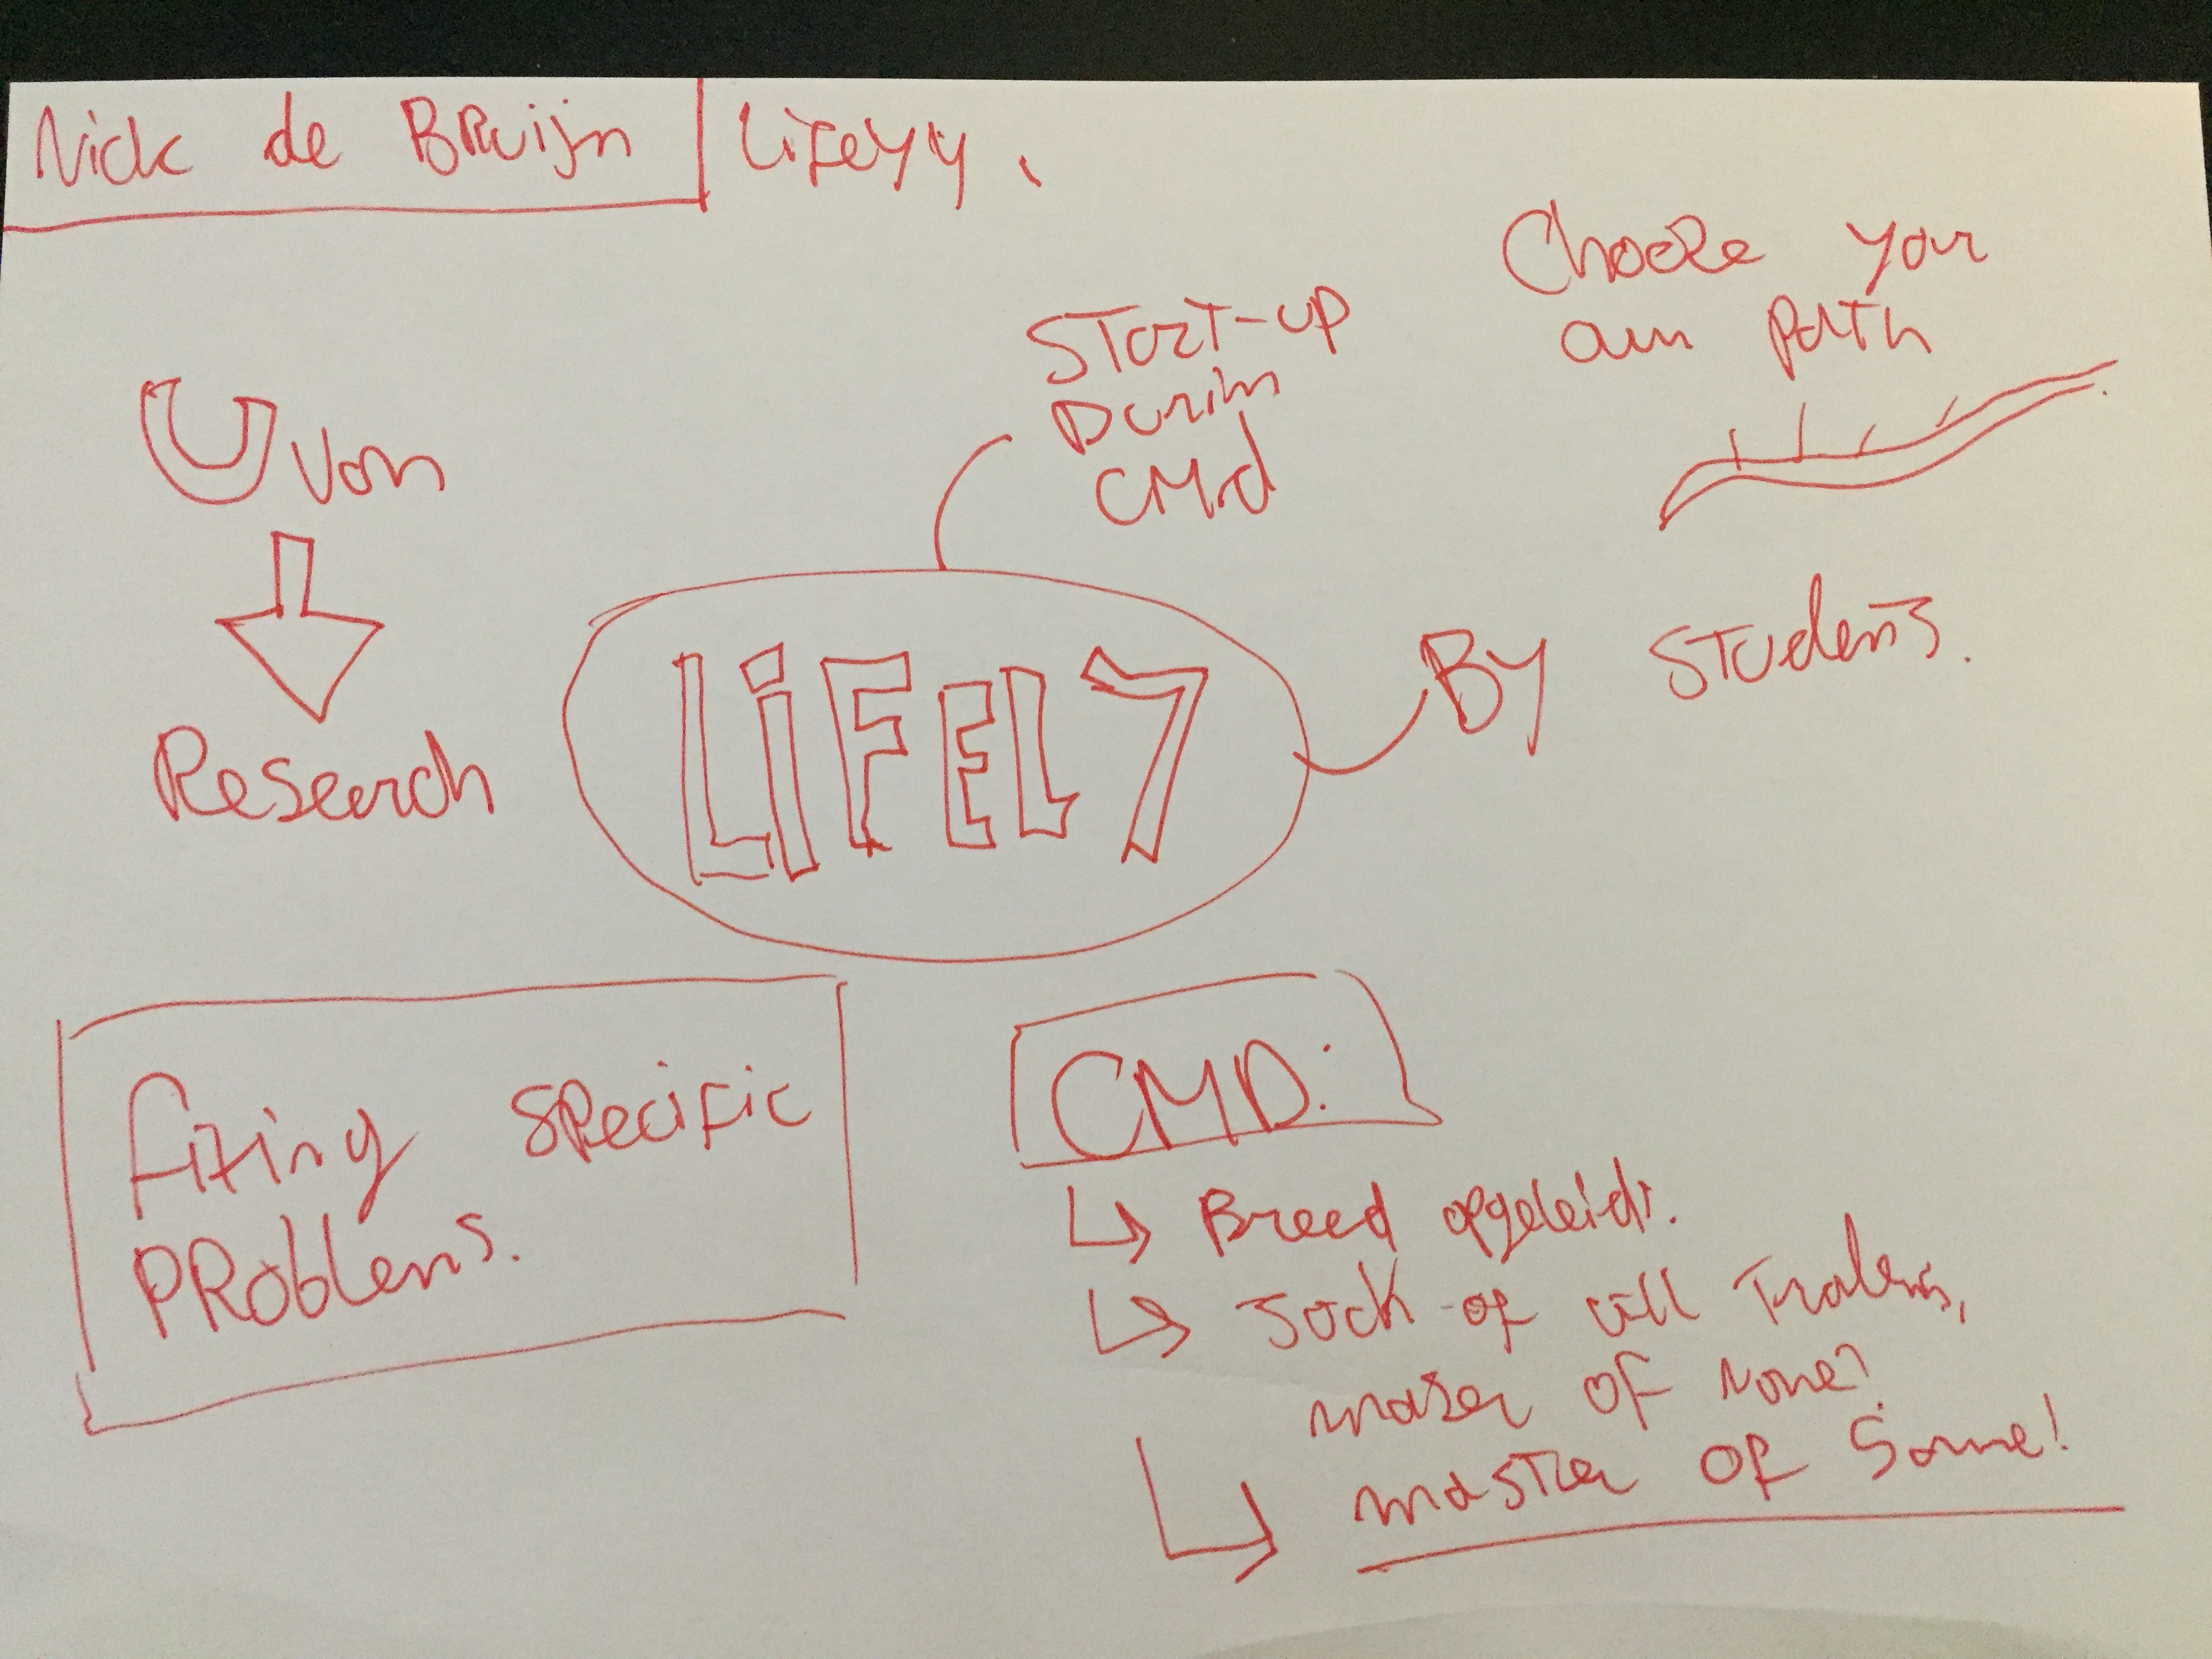 Nick de BRuijn | LiFeyy.
Chooze your
own Path
START-UP
During
CMd
Uvon
Research
LiFEL7
By STudents.
fixing SPecific
PRoblems.
CMD:
↳ Breed opgeleidt.
↳ Jack of all Trades,
master of None?
↳ master of Some!